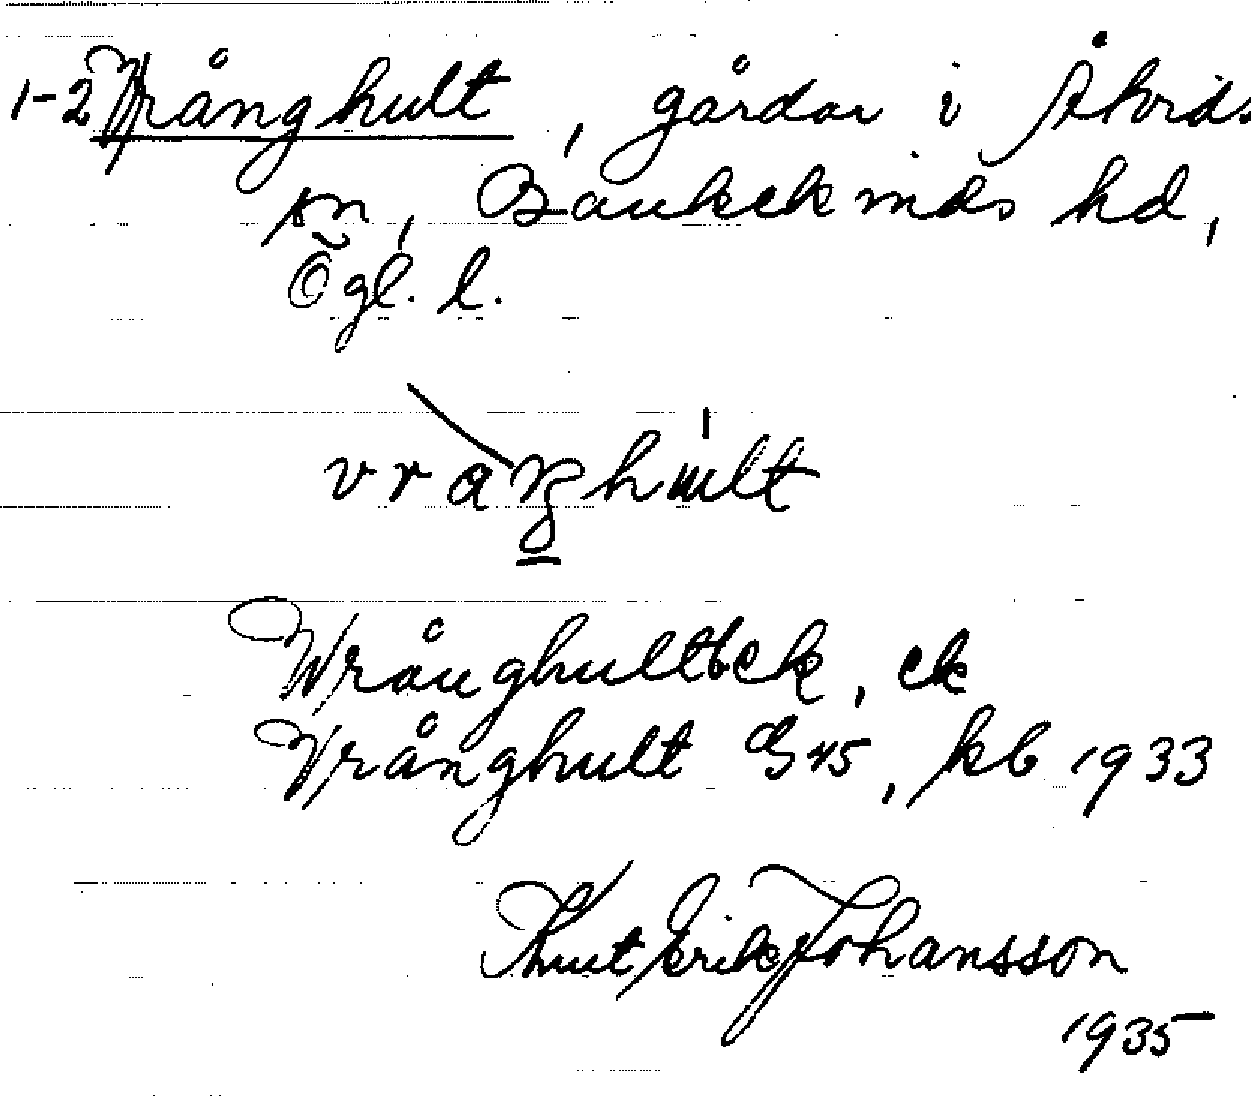 1-2 Vrånghult, gårdar i Åtvids
sn, Bankekinds hd,
Ögl. l.
Wrånghult ek, ek
Vrånghult G45, kb 1933
Knut Erik Johansson
1935